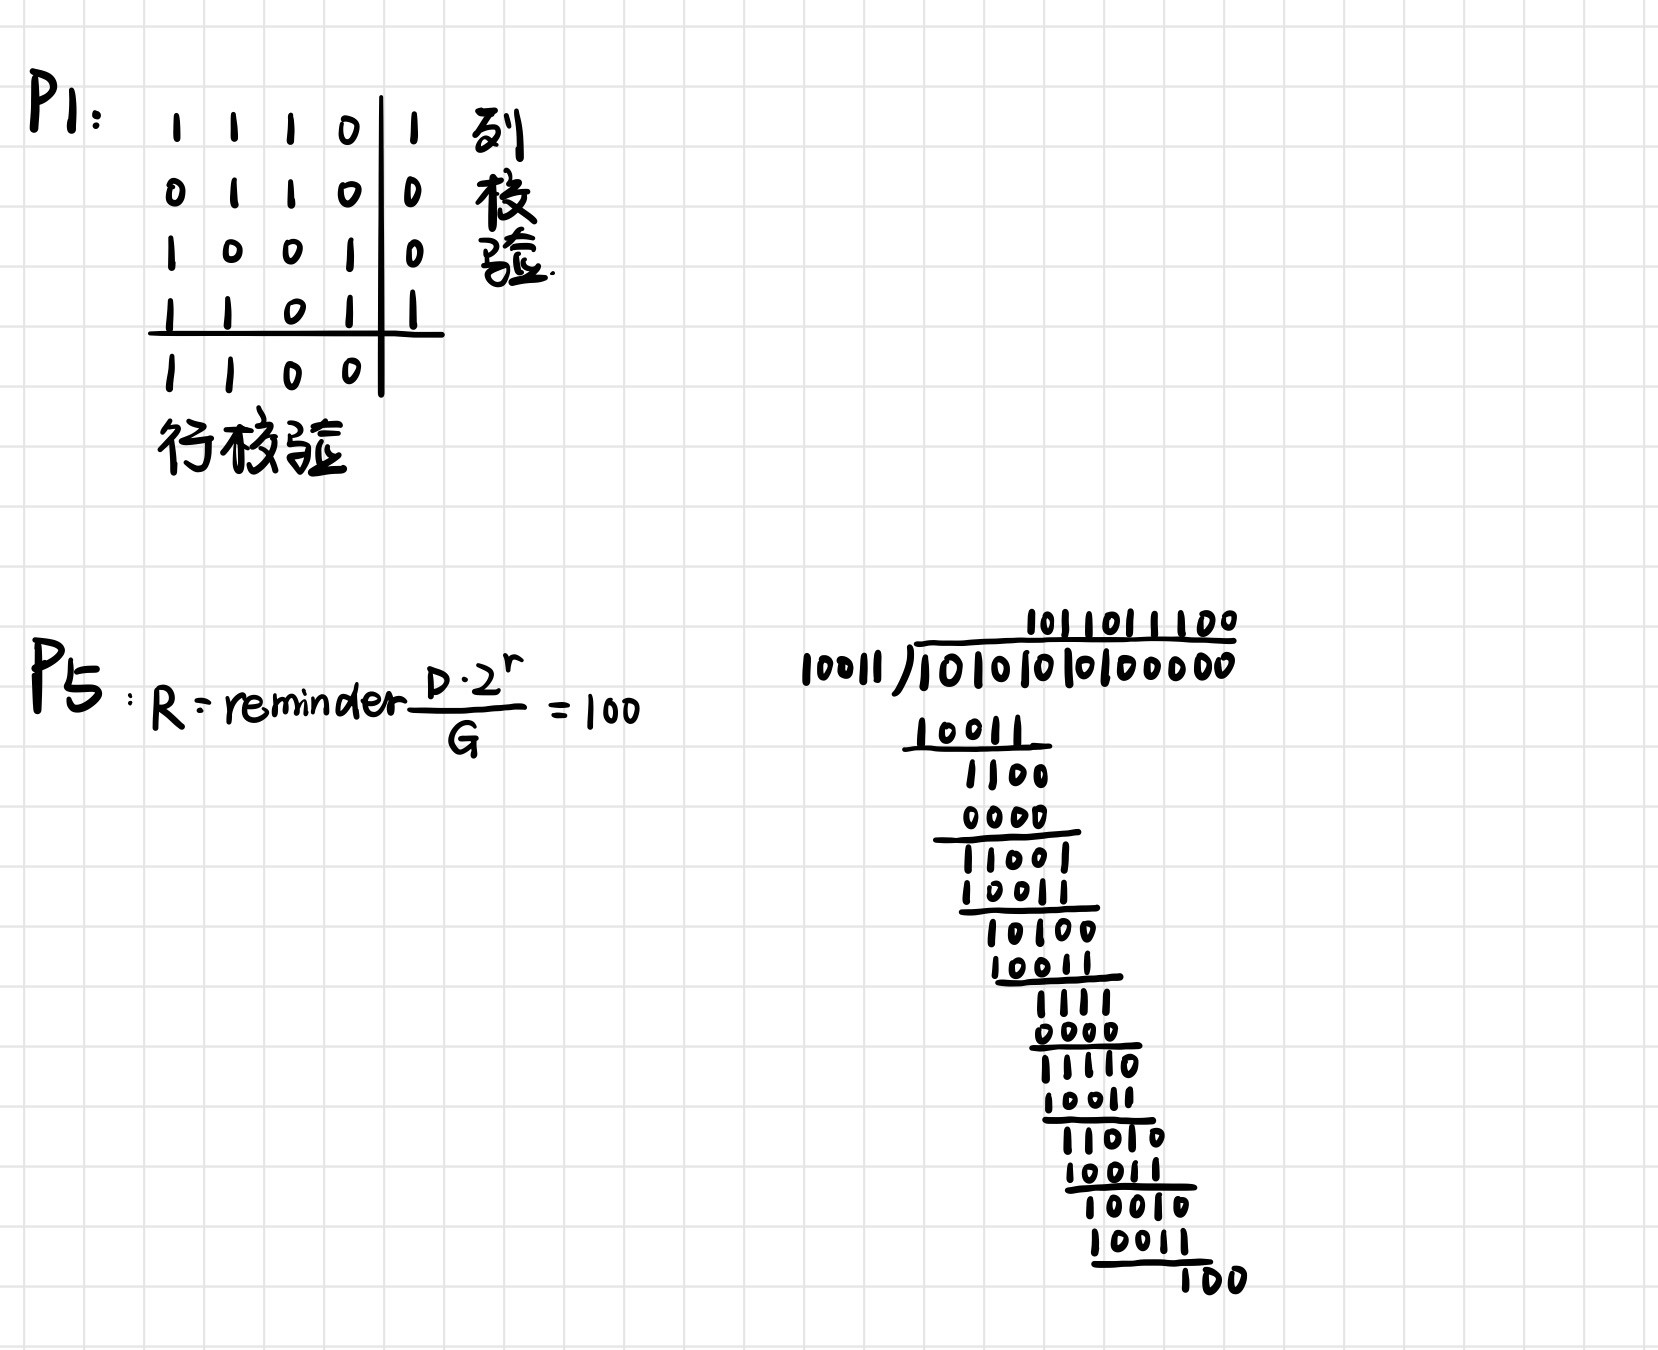 P1:
1 1 1 0 1 列
0 1 1 0 0 校
1 0 0 1 0 验.
1 1 0 1 1
1 1 0 0
行校验
P5: R = reminder D·2^r / G = 100
1011011100
10011)10101010100000
10011
1100
0000
11001
10011
10100
10011
1111
0000
11110
10011
11010
10011
10010
10011
100